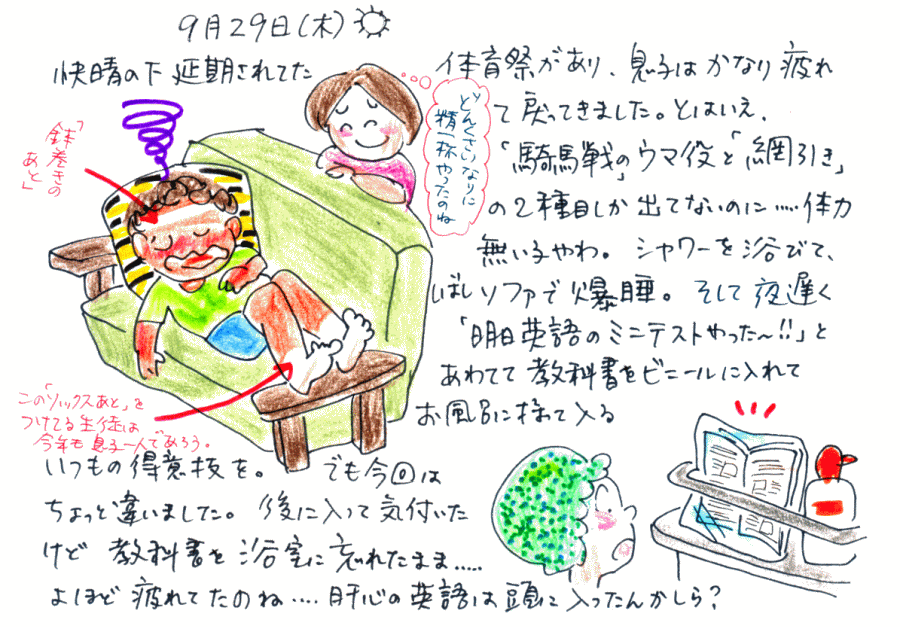 9月29日(木)
快晴の下 延期されてた
体育祭があり、息子は かなり疲れ
て戻ってきました。とはいえ、
「騎馬戦」のウマ役と「綱引き」
の2種目しか出てないのに.....体力
無い子やわ。シャワーを浴びて、
しばしソファで爆睡。そして夜遅く
「明日英語のミニテストやった〜!!」と
あわてて教科書をビニールに入れて
お風呂に持って入る
いつもの得意技を。でも今回は
ちょっと違いました。後に入って気付いた
けど 教科書を浴室に忘れたまま.....
よほど疲れてたのね....肝心の英語は頭に入ったんかしら?
どんくさいなりに
精一杯やったのね
「鉢巻きの
あと」
この「ソックスあと」を
つけてる生徒は
今年も息子一人であろう。